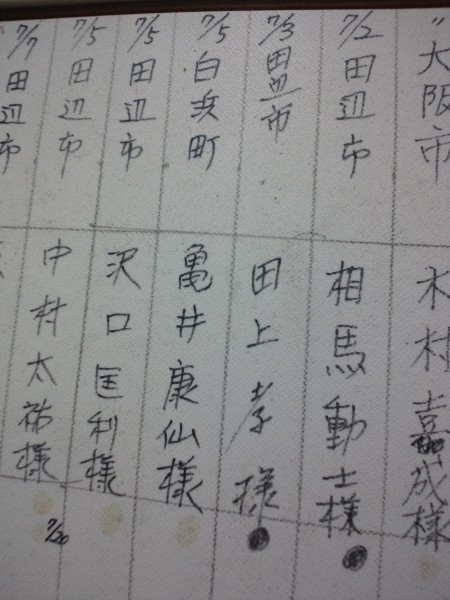 〃 大阪市 木村嘉成様
7/2 田辺市 相馬動士様
7/3 田辺市 田上孝様
7/5 白浜町 亀井康仙様
7/5 田辺市 沢口匡利様
7/5 田辺市 中村太祐様
7/20
7/7 田辺市